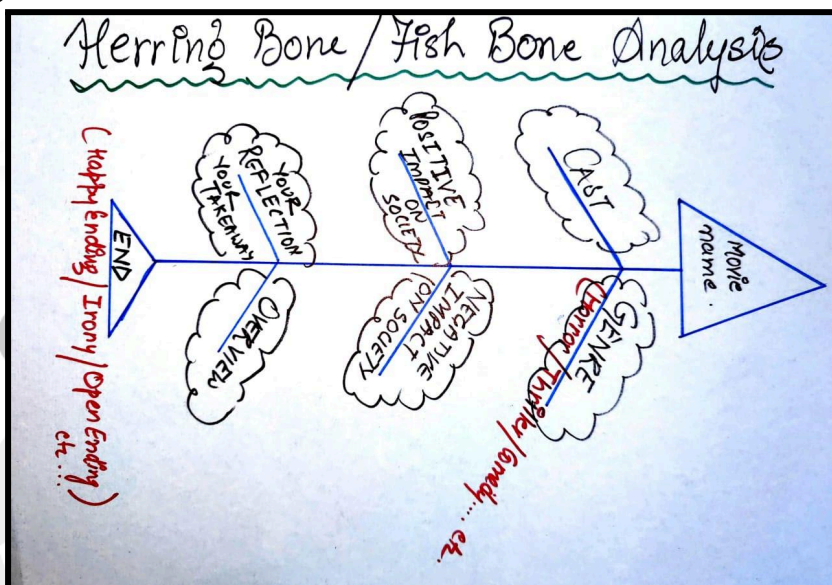 Herring Bone / Fish Bone Analysis
Movie
name.
CAST
GENRE
(Horror/Thriller/Comedy.... etc.
POSITIVE
IMPACT
ON
SOCIETY
NEGATIVE
IMPACT
ON SOCIETY
YOUR
REFLECTION
YOUR
TAKEAWAY
OVERVIEW
END
(Happy Ending / Irony / Open Ending
etc....)